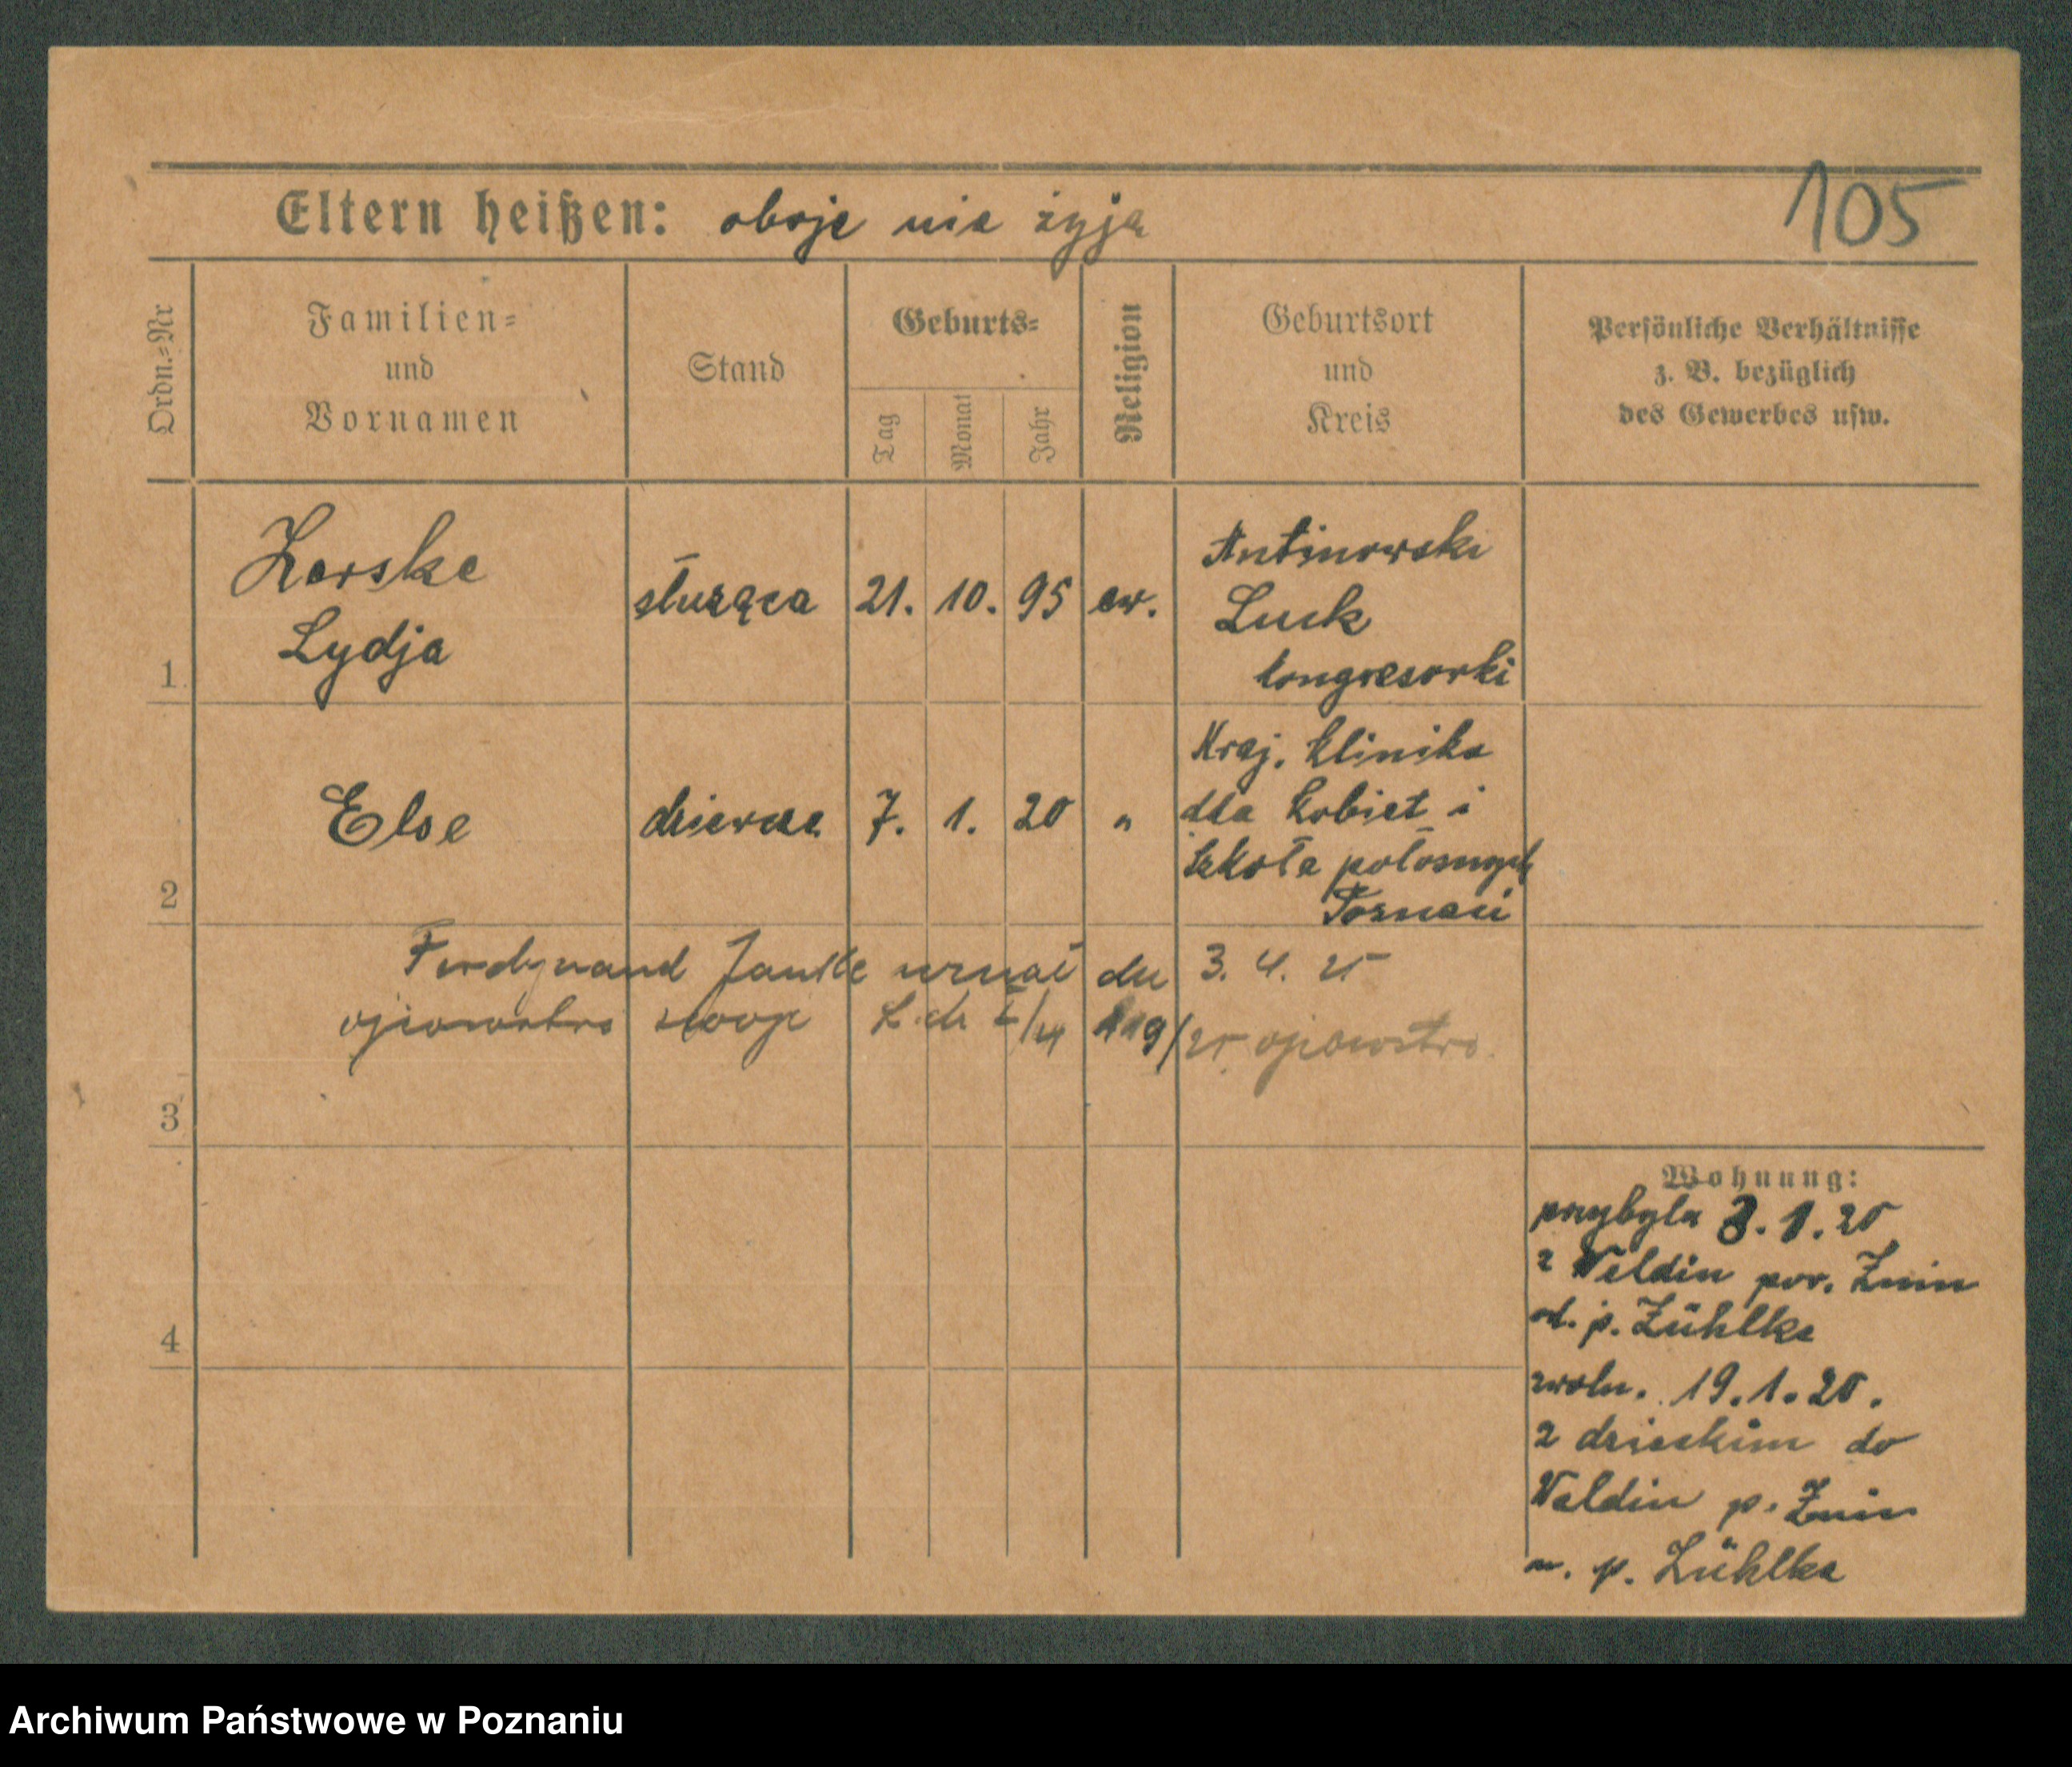 105
Eltern heißen: oboje nie żyją
Ordn.-Nr
Familien-
und
Vornamen
Stand
Geburts-
Tag
Monat
Jahr
Religion
Geburtsort
und
Kreis
Persönliche Verhältnisse
z. B. bezüglich
des Gewerbes usw.
1.
Zerske
Lydja
służąca
21. 10. 95
ew.
Antinowski
Luck
kongresorki
2
Else
dziewcze
7. 1. 20
"
Kraj. klinika
dla kobiet i
szkoła położnych
Poznań
3
Ferdynand uznał dn 3. 4. 25
ojcowstwo swoje L. dz 119/25 ojcowstwo.
4
Wohnung:
przybyła 3. 1. 20
z Weldin pow. Żnin
od. p. Zühlke
zwoln. 19. 1. 20.
z dzieckim do
Weldin p. Żnin
u. p. Zühlke
Archiwum Państwowe w Poznaniu